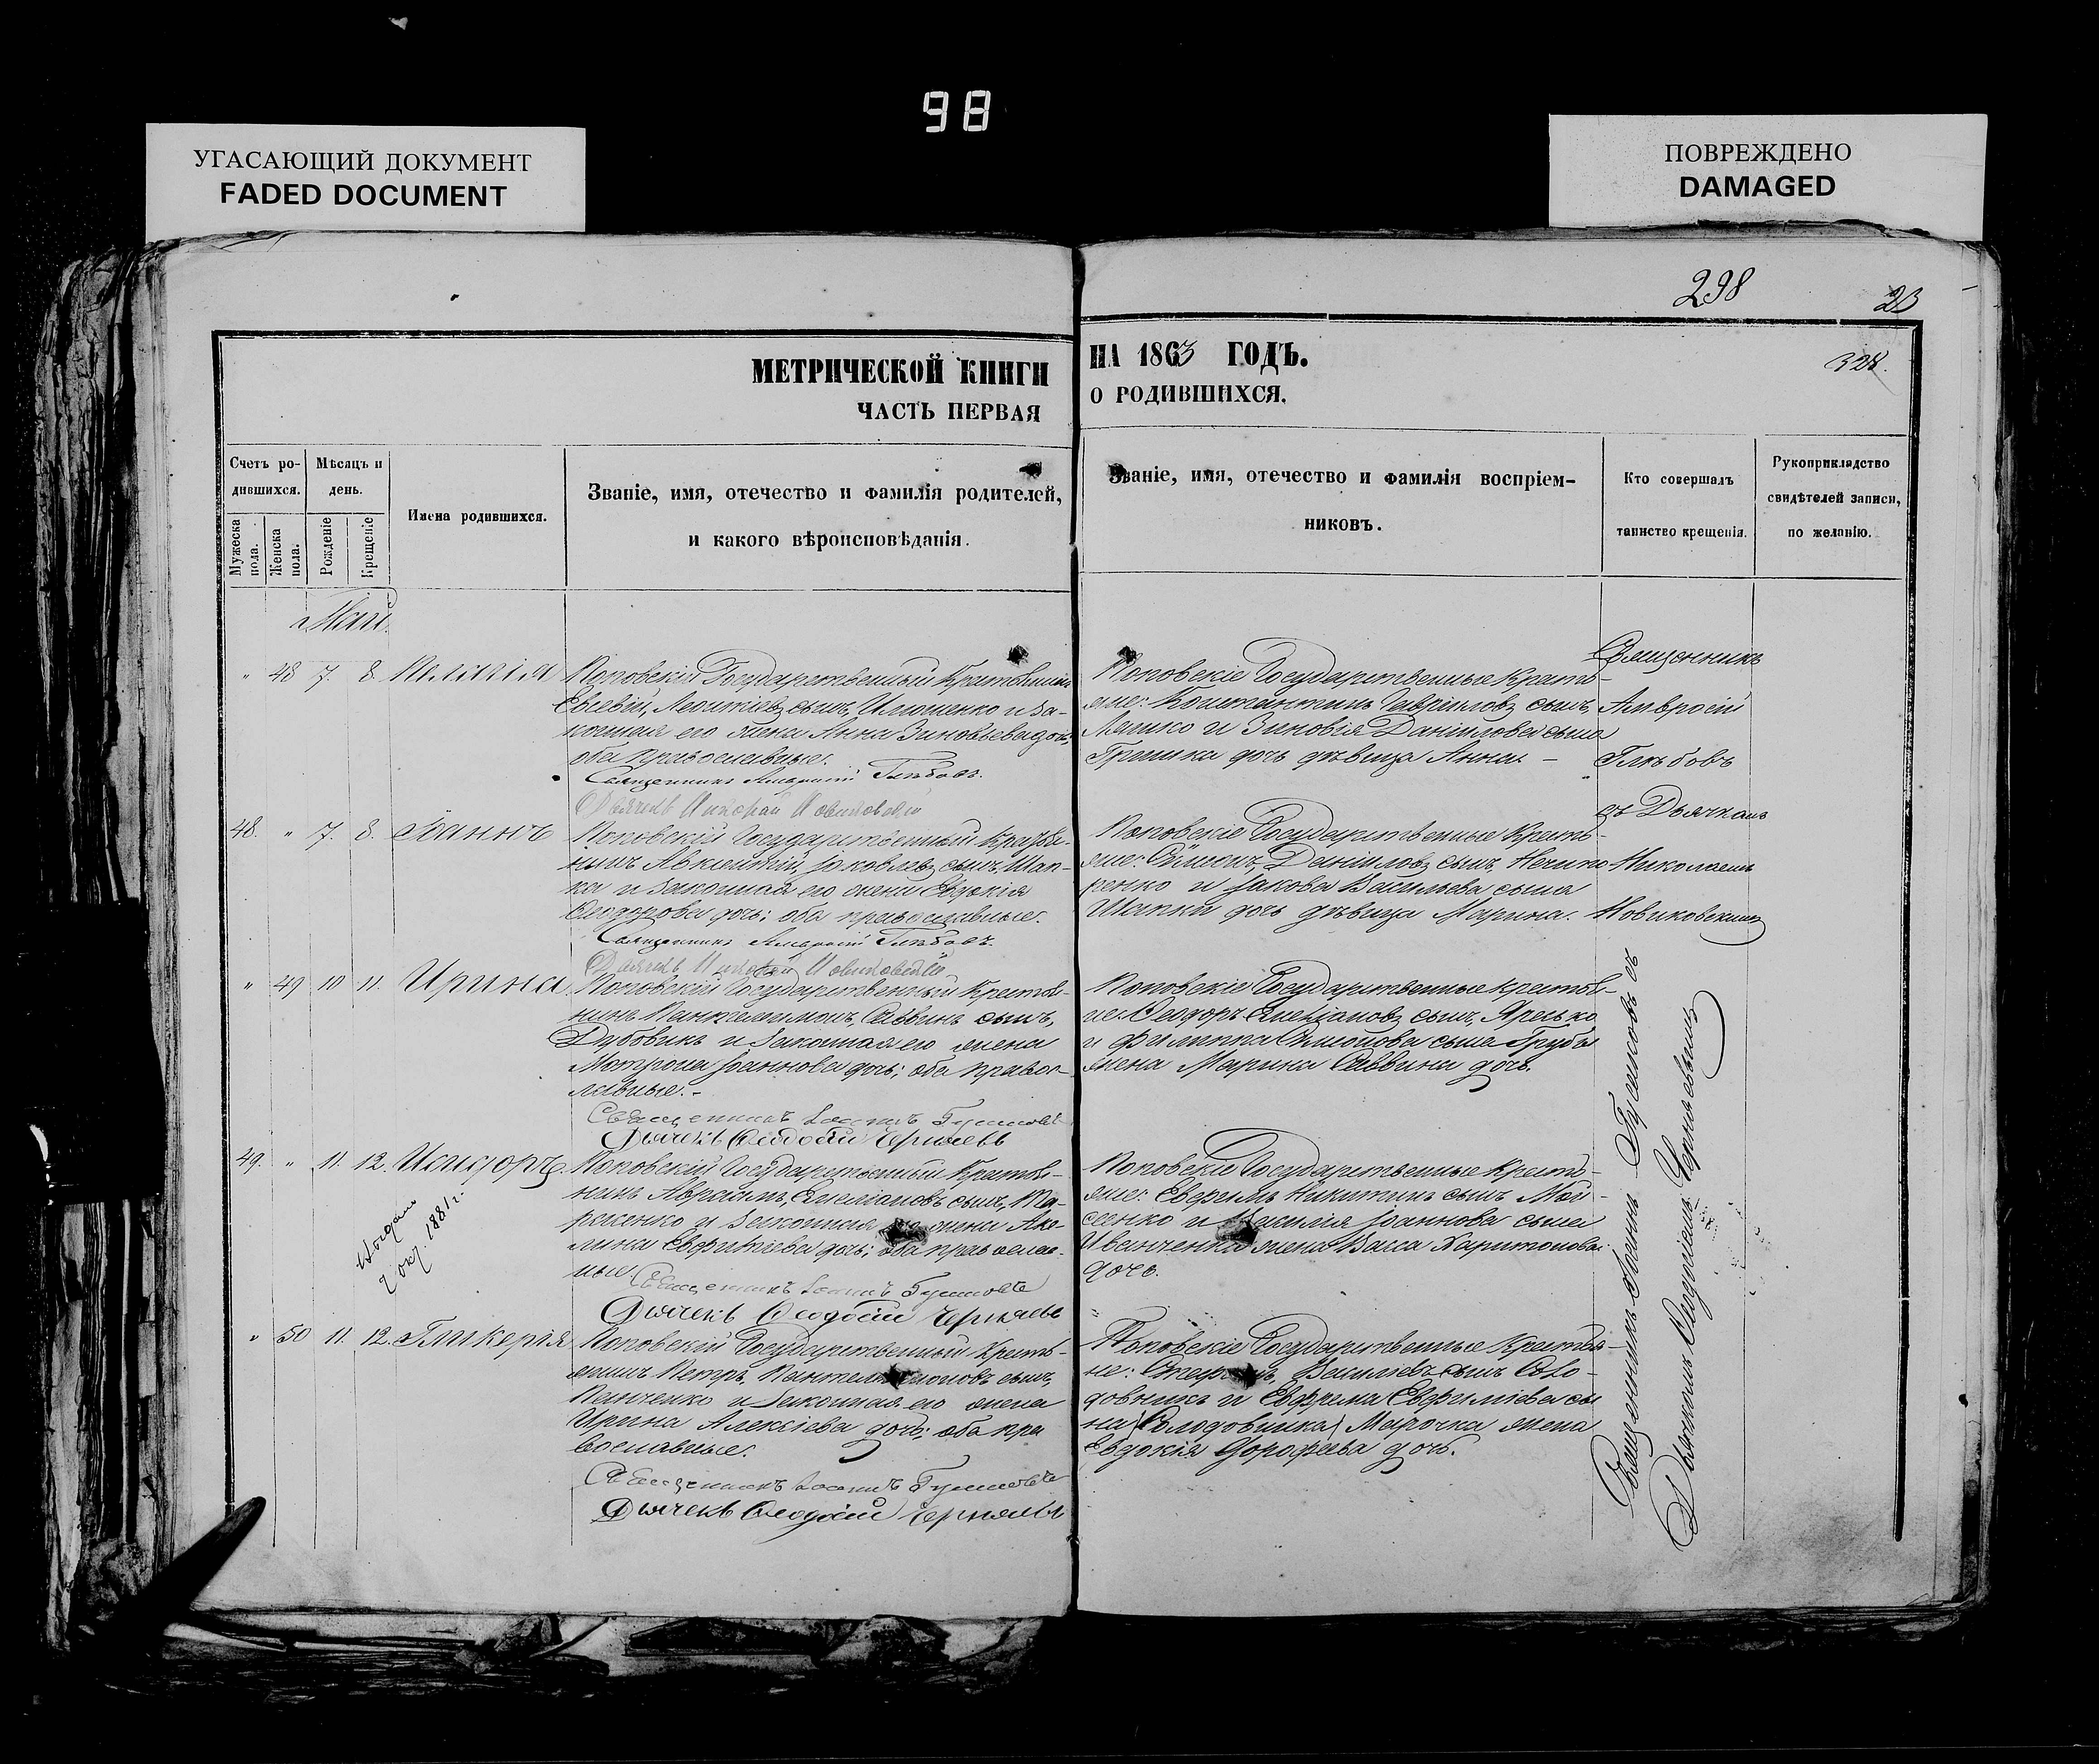 98
УГАСАЮЩИЙ ДОКУМЕНТ
FADED DOCUMENT
ПОВРЕЖДЕНО
DAMAGED
298
23
328.
МЕТРИЧЕСКОЙ КНИГИ НА 1863 ГОДЪ.
ЧАСТЬ ПЕРВАЯ О РОДИВШИХСЯ.
Счетъ ро-
дившихся.
Мужеска
пола.
Женска
пола.
Мѣсяцъ и
день.
Рожденіе
Крещеніе
Имена родившихся.
Званіе, имя, отечество и фамилія родителей,
и какого вѣроисповѣданія.
Званіе, имя, отечество и фамилія воспріем-
никовъ.
Кто совершалъ
таинство крещенія.
Рукоприкладство
свидѣтелей записи,
по желанію.
Май.
" 48 7. 8. Пелагія
Поповскій Государственный Крестьянинъ
Евсевій, Леонтіевъ сынъ, Ильченко и за-
конная его жена Анна Зиновьева дочь,
оба православные.
Священникъ Амвросій Глѣбовъ.
Дьячекъ Николай Новиковскій
Поповскіе Государственные Крестья-
яне: Константинъ Гавріиловъ сынъ,
Ляшко и Зиновія Даніилова сына
Гришка дочь дѣвица Анна. –
Священникъ
Амвросій
Глѣбовъ
съ Дьячкомъ
Николаемъ
Новиковскимъ
48. " 7. 8. Іоаннъ
Поповскій Государственный Крестья-
нинъ Авксентій, Іаковлевъ сынъ, Шап-
ка и законная его жена Евдокія
Ѳеодорова дочь; оба православные.
Священникъ Амвросій Глѣбовъ.
Дьячекъ Николай Новиковскій
Поповскіе Государственные Кресть-
яне: Сѵмеонъ, Даніиловъ сынъ, Нечипо
ренко и Іакова Васильева сына
Шапки дочь дѣвица Марина.
" 49 10 11. Ирина
Поповскій Государственный Крестья-
нинъ Пантелеимонъ, Саввинъ сынъ,
Дубовикъ и законная его жена
Матрона Іоаннова дочь; оба правос-
лавные. –
Священникъ Іоаннъ Гусаковъ
Дьячекъ Ѳеодосій Черняевъ
Поповскіе Государственные Крестья-
не: Ѳеодоръ Емеліановъ сынъ, Яресько
и Филиппа Симонова сына Грубы
жена Марина Саввина дочь.
49. " 11. 12. Исидоръ.
Поповскій Государственный Крестья-
нинъ Авраамъ, Емеліановъ сынъ, Та-
расенко и законная его жена Аки-
лина Евфиміева дочь; оба православ-
ные.
Священникъ Іоаннъ Гусаковъ
Дьячекъ Ѳеодосій Черняевъ
Поповскіе Государственные Кресть-
яне: Евфимъ Никитинъ сынъ Мой-
сеенко и Василія Іоаннова сына
Иванченка жена Васса Харитонова
дочь.
Выдана
7 окт. 1881 г.
" 50 11. 12. Гликерія
Поповскій Государственный Кресть-
янинъ Петръ, Пантелеимоновъ сынъ,
Панченко и законная его жена
Ирина Алексіева дочь; оба пра
вославные.
Священникъ Іоаннъ Гусаковъ
Дьячекъ Ѳеодосій Черняевъ
Поповскіе Государственные Крестья-
не: Стефанъ, Василіевъ сынъ Соло-
довникъ и Евфрема Евфиміева сы
на (Солодовника) Марочка жена
Евдокія Дороѳеева дочь.
Священникъ Іоаннъ Гусаковъ съ
Дьячкомъ Ѳеодосіемъ Черняевымъ